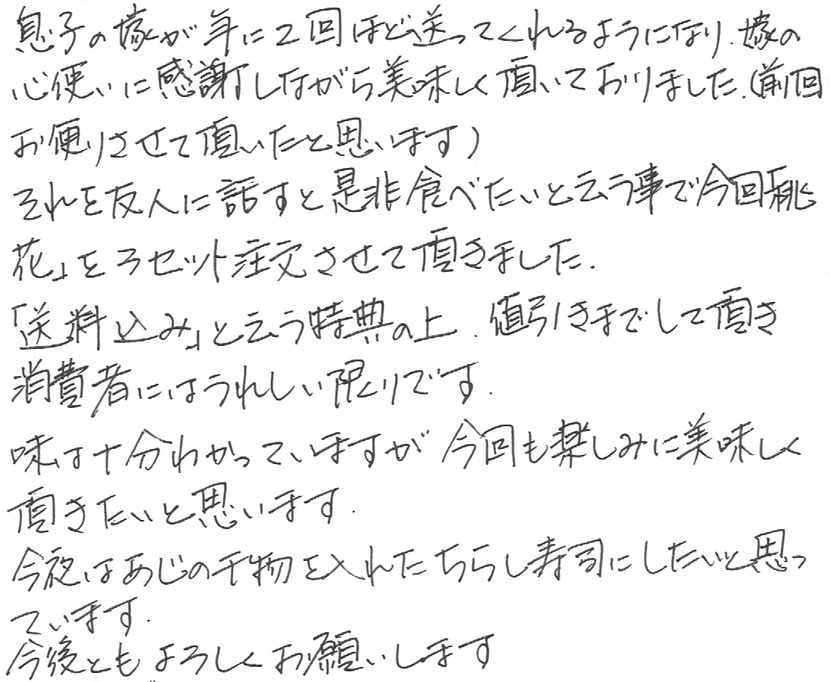 息子の嫁が年に2回ほど送ってくれるようになり、嫁の
心使いに感謝しながら美味しく頂いておりました。(前回
お便りさせて頂いたと思います)
それを友人に話すと是非食べたいと云う事で今回「桃
花」を3セット注文させて頂きました。
「送料込み」と云う特典の上、値引きまでして頂き
消費者にはうれしい限りです。
味は十分わかっていますが今回も楽しみに美味しく
頂きたいと思います。
今夜はあじの干物を入れたちらし寿司にしたいと思っ
ています。
今後ともよろしくお願いします